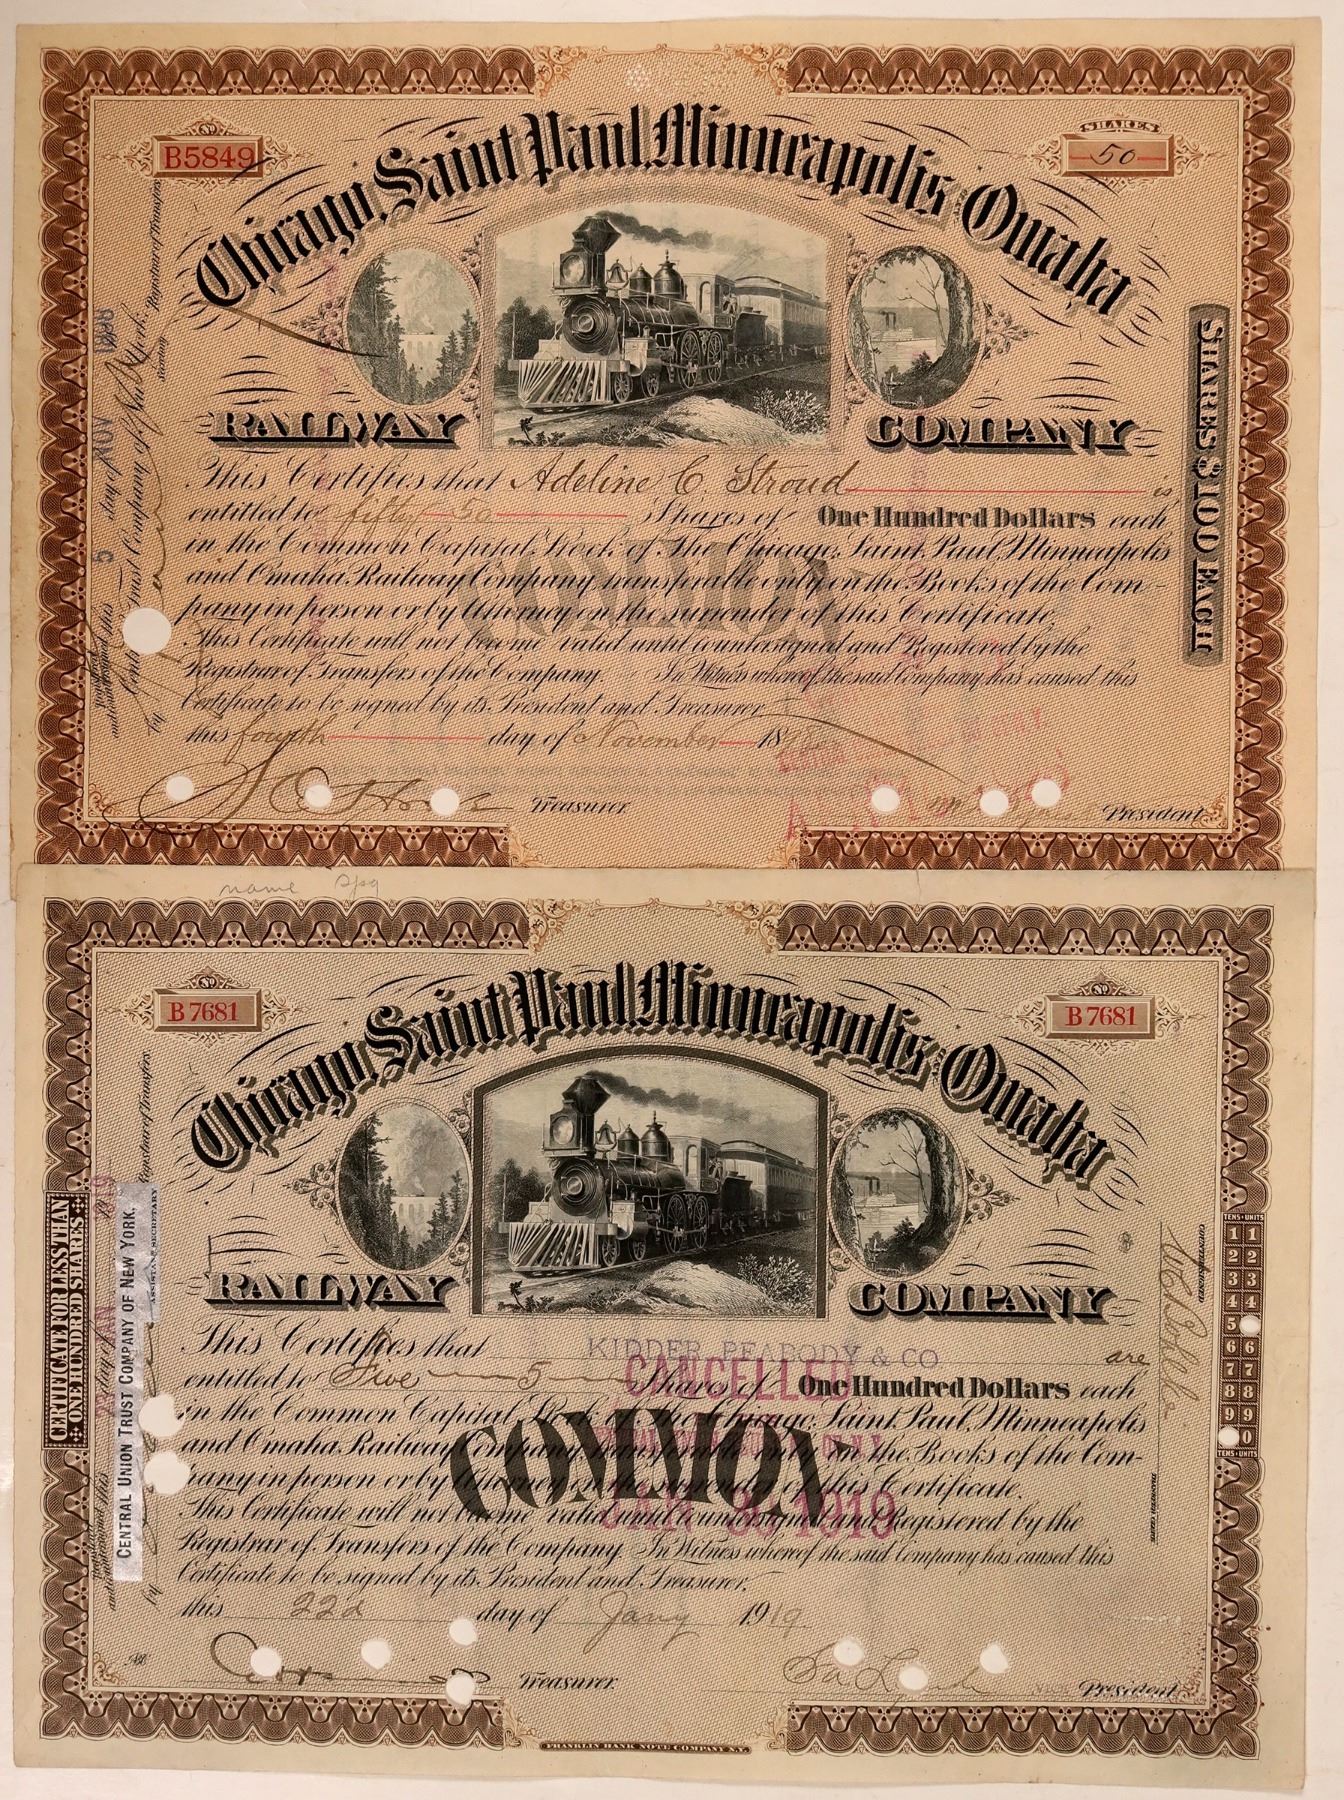 No
B5849
SHARES
50
Chicago, Saint Paul, Minneapolis and Omaha
RAILWAY COMPANY
SHARES $100 EACH
Registrar of Transfers
Secretary
5 day of NOV
This Certifies that Adeline C. Stroud is
entitled to fifty 50 Shares of One Hundred Dollars each
in the Common Capital Stock of The Chicago, Saint Paul, Minneapolis
and Omaha Railway Company, transferable only on the Books of the Com-
pany in person or by Attorney on the surrender of this Certificate.
This Certificate will not become valid until countersigned and Registered by the
Registrar of Transfers of the Company. In Witness whereof the said Company has caused this
Certificate to be signed by its President and Treasurer
this fourth day of November 18
Treasurer.
President.
COMMON
name
No
B7681
No
B7681
Chicago, Saint Paul, Minneapolis and Omaha
RAILWAY COMPANY
CERTIFICATE FOR LESS THAN
ONE HUNDRED SHARES
CENTRAL UNION TRUST COMPANY OF NEW YORK,
ASSISTANT SECRETARY
Registrar of Transfers
day of JAN 1919
This Certifies that KIDDER PEABODY & CO are
entitled to Five 5 Shares of One Hundred Dollars each
in the Common Capital Stock of The Chicago, Saint Paul, Minneapolis
and Omaha Railway Company, transferable only on the Books of the Com-
pany in person or by Attorney on the surrender of this Certificate.
This Certificate will not become valid until countersigned and Registered by the
Registrar of Transfers of the Company. In Witness whereof the said Company has caused this
Certificate to be signed by its President and Treasurer,
this 22d day of Jany 1919
Treasurer.
President.
COMMON
CANCELLED
JAN 30 1919
COUNTERSIGNED
TRANSFER CLERK
TENS UNITS
1 1
2 2
3 3
4 4
5
6 6
7 7
8 8
9 9
0
TENS UNITS
FRANKLIN BANK NOTE COMPANY N.Y.